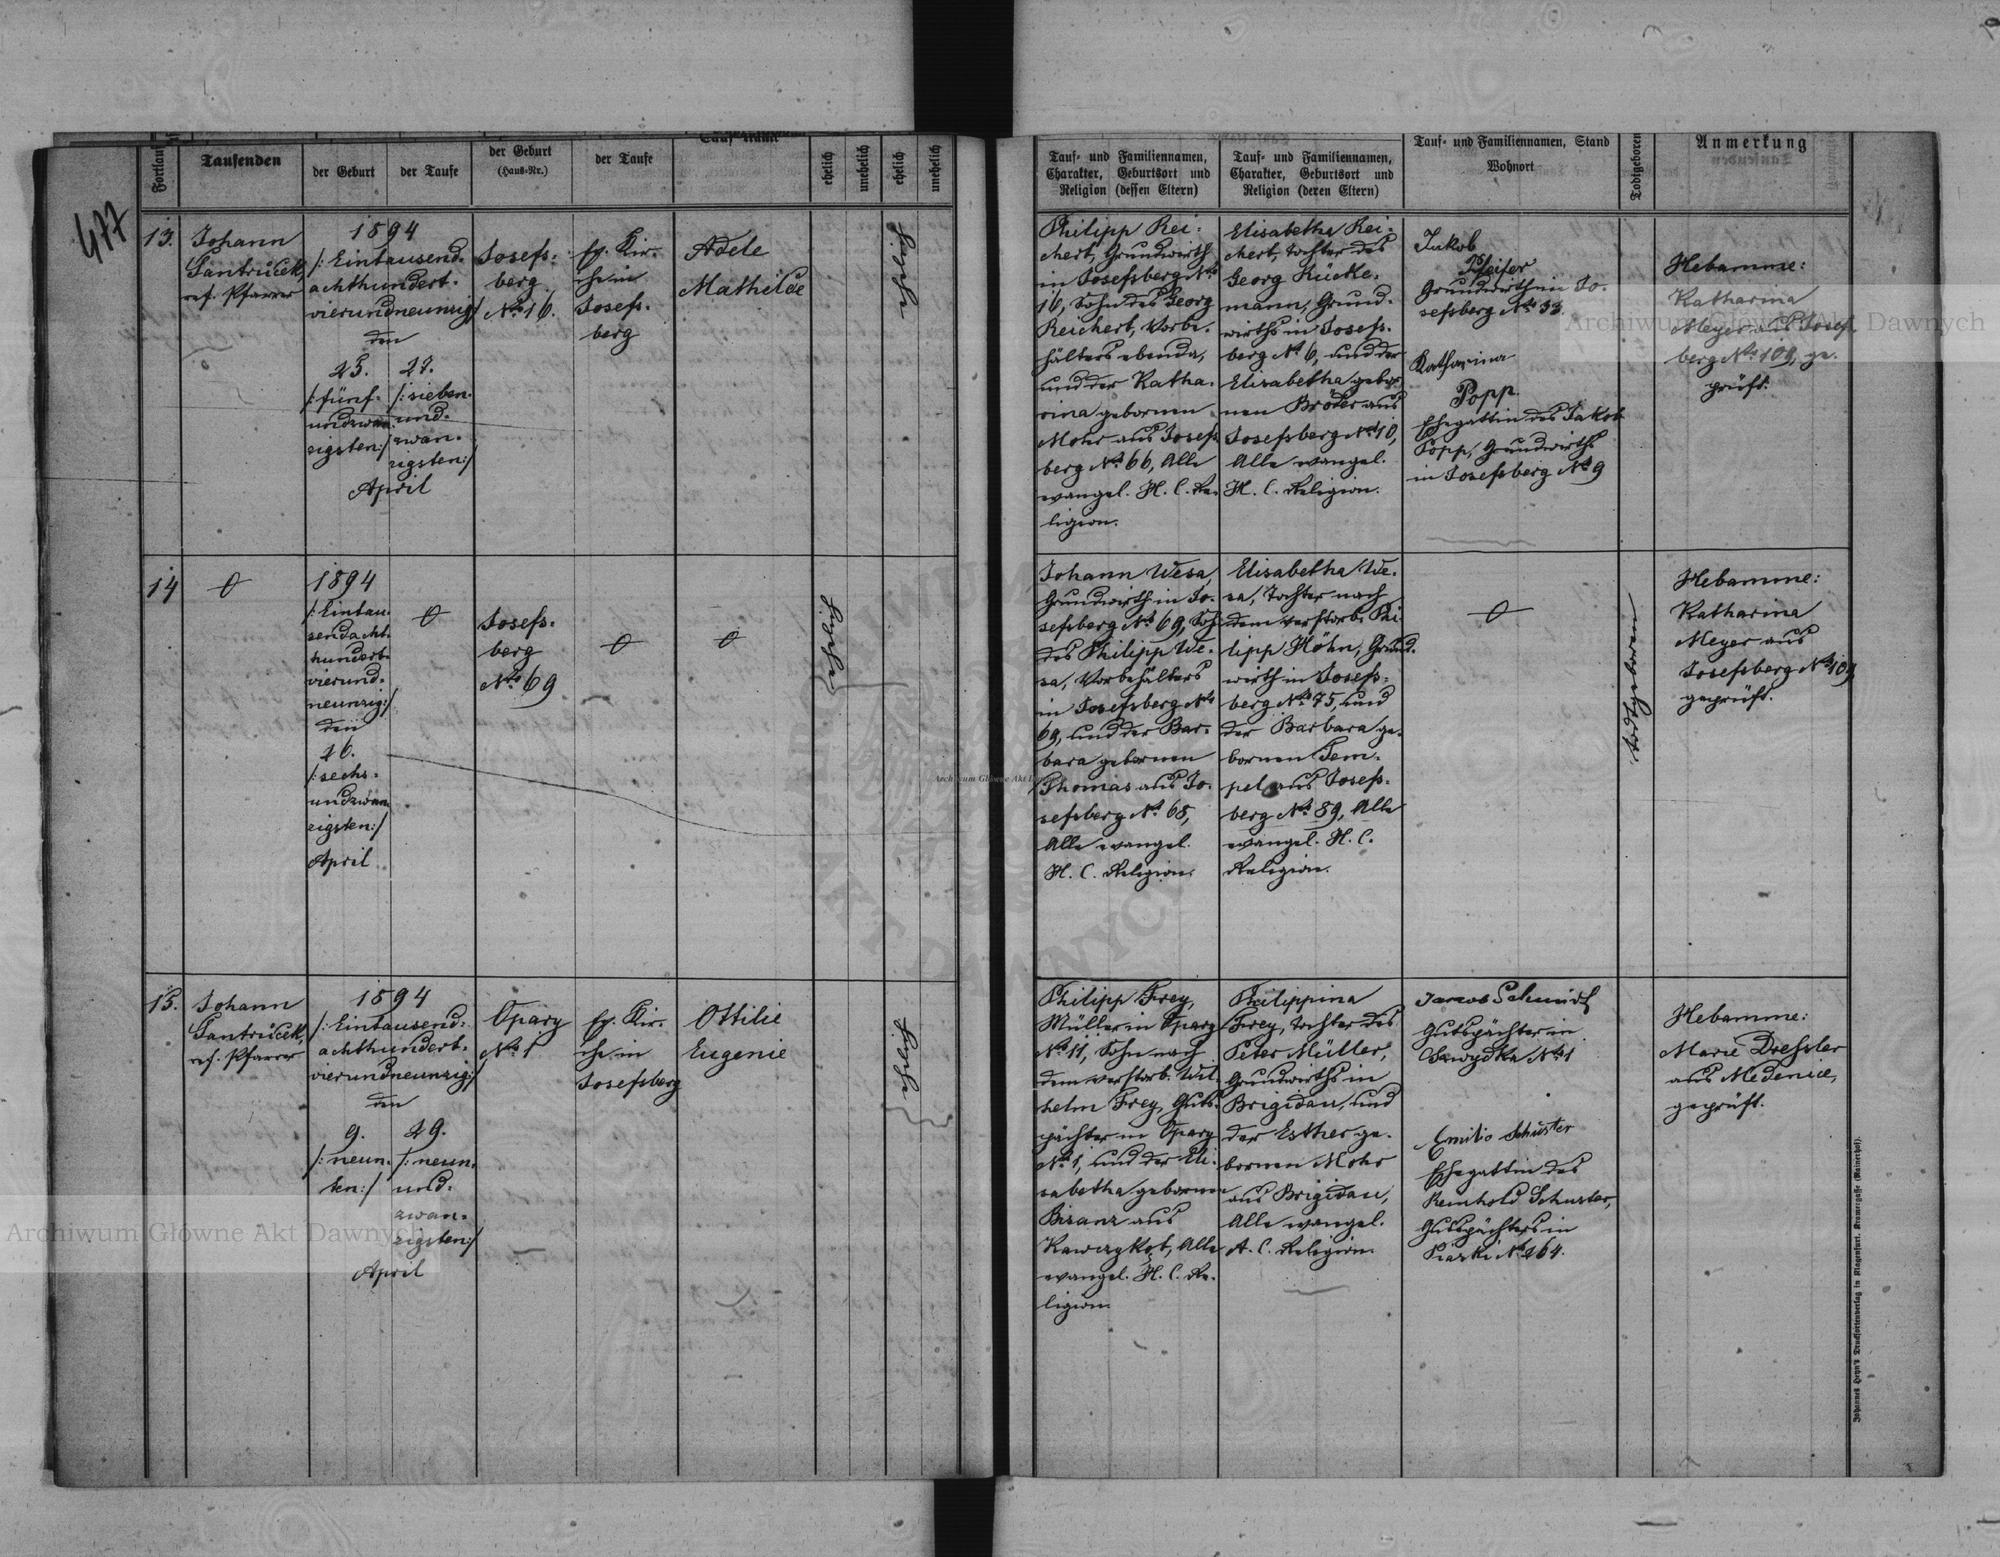 477
Fortlau
Taufenden
der Geburt
der Taufe
der Geburt
(Haus-Nr.)
der Taufe
Taufname
ehelich
unehelich
ehelich
unehelich
13.
Johann
ref. Pfarrer
1894
/: Eintausend-
achthundert-
vierundneunzig/
den
25.
/: fünf-
undzwan-
zigsten:/
27.
/: sieben-
und-
zwan-
zigsten:/
April
Josefs-
berg
No 16.
ev. Kir-
che in
Josefs-
berg
Adele
Mathilde
14
1894
/: Eintau-
sendacht-
hundert-
vierund-
neunzig:/
den
26.
/: sechs-
undzwan-
zigsten:/
April
Josefs-
berg
No 69
15.
Johann
ref. Pfarrer
1894
/: Eintausend-
achthundert-
vierundneunzig:/
den
9.
/: neun-
ten:/
29.
/: neun-
und-
zwan-
zigsten:/
April
Opary
No 1
ev. Kir-
che in
Josefsberg
Ottilie
Eugenie
Tauf- und Familiennamen,
Charakter, Geburtsort und
Religion (dessen Eltern)
Tauf- und Familiennamen,
Charakter, Geburtsort und
Religion (deren Eltern)
Tauf- und Familiennamen, Stand
Wohnort
Todtgeboren
Anmerkung
Philipp Rei-
chert, Grundwirth
in Josefsberg No
16, Sohn des Georg
Reichert, Vorbe-
hälters ebenda,
und der Katha-
rina gebornen
Mohr aus Josefs
berg No 66, Alle
evangel. H. C. Re-
ligion.
Elisabetha Rei-
chert, Tochter des
Georg Rückle-
mann, Grund-
wirths in Josefs-
berg No 6, und der
Elisabetha gebor-
nen Bröder aus
Josefsberg No 10,
Alle evangel.
H. C. Religion.
Jakob
Pfeifer
Grundwirth in Jo-
sefsberg No 33.
Katharina
Popp.
Ehegattin des Jakob
Popp, Grundwirths
in Josefsberg No 9
Hebamme:
Katharina
Meyer aus Josefs
berg No 109, ge-
prüft.
Johann Wesa,
Grundwirth in Jo-
sefsberg No 69, Sohn
des Philipp We-
sa, Vorbehälters
in Josefsberg No
69, und der Bar-
bara gebornen
Thomas aus Jo-
sefsberg No 68,
Alle evangel.
H. C. Religion.
Elisabetha We-
sa, Tochter nach
dem verstorb. Phi-
lipp Höhn, Grund-
wirth in Josefs-
berg No 75, und
der Barbara ge-
bornen Tem-
pel aus Josefs-
berg No 89, Alle
evangel. H. C.
Religion.
todtgeboren
Hebamme:
Katharina
Meyer aus
Josefsberg No 109,
geprüft.
Philipp Frey,
Müller in Opary
No 11, Sohn nach
dem verstorb. Wil-
helm Frey, Guts-
pächter in Opary
No 1, und der Eli-
sabetha gebornen
Bisanz aus
Alle
evangel. H. C. Re-
ligion.
Philippina
Frey, Tochter des
Peter Müller,
Grundwirths in
Brigidau, und
der Esther ge-
bornen Mohr
aus Brigidau,
Alle evangel.
A. C. Religion.
Jacob Schmidt
Gutspächter in
No 1
Schuster
Ehegattin des
Reinhold Schuster,
Gutspächters in
No 264.
Hebamme:
Marie Dressler
aus Medenice,
geprüft.
Johannes Heyn's Drucksortenverlag in Klagenfurt, Kramergasse (Mainerhof).
Archiwum Główne Akt Dawnych
Archiwum Główne Akt Dawnych
Archiwum Główne Akt Dawnych